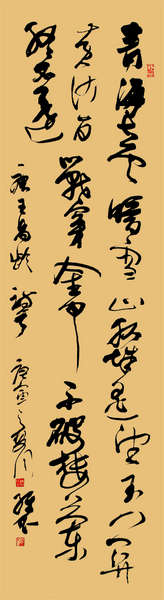 青海长云暗雪山孤城遥望玉门关
黄沙百戰穿金甲不破楼蘭
终不还
唐王昌龄诗 庚寅之